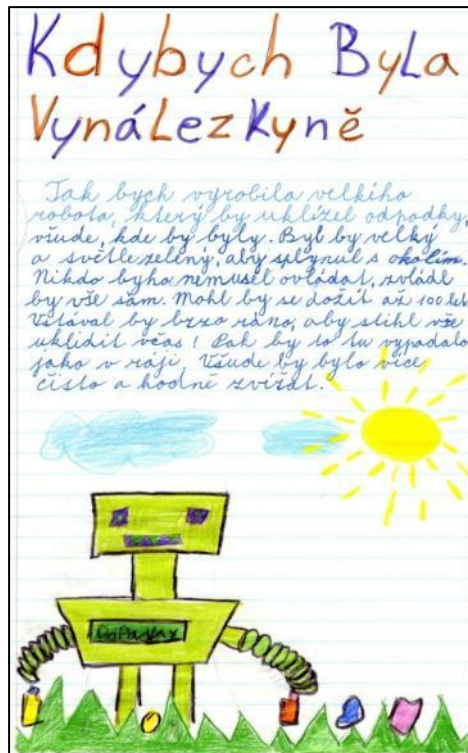 Kdybych Byla
Vynálezkyně
Tak bych vyrobila velkého
robota, který by uklízel odpadky,
všude, kde by byly. Byl by velký
a světle zelený, aby splynul s okolím.
Nikdo byho nemusel ovládat, zvládl
by vše sám. Mohl by se dožít až 100 let.
Vstával by brzo ráno, aby stihl vše
uklidit včas! Pak by to tu vypadalo
jako v ráji. Všude by bylo více
čisto a hodně zvířat.